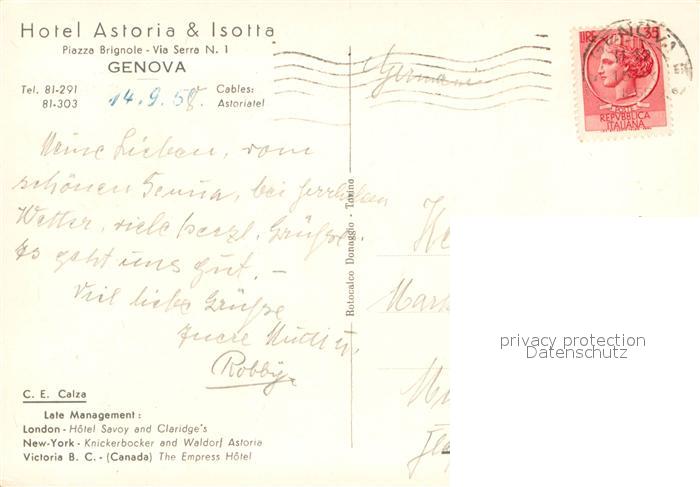 Hotel Astoria & Isotta
Piazza Brignole - Via Serra N. 1
GENOVA
Tel. 81-291
81-303
Cables:
Astoriatel
14.9.58.
LIRE 35
POSTE
REPVBBLICA
ITALIANA
Germania
Meine Lieben, vom
schönen Genua, bei herrlichem
Wetter, viele herzl. Grüße.
Es geht uns gut. –
Viel liebe Grüße
Euere Mutti u.
Robby.
Rotocalco Donaggio - Torino
privacy protection
Datenschutz
C. E. Calza
Late Management:
London - Hôtel Savoy and Claridge's
New-York - Knickerbocker and Waldorf Astoria
Victoria B. C. - (Canada) The Empress Hôtel